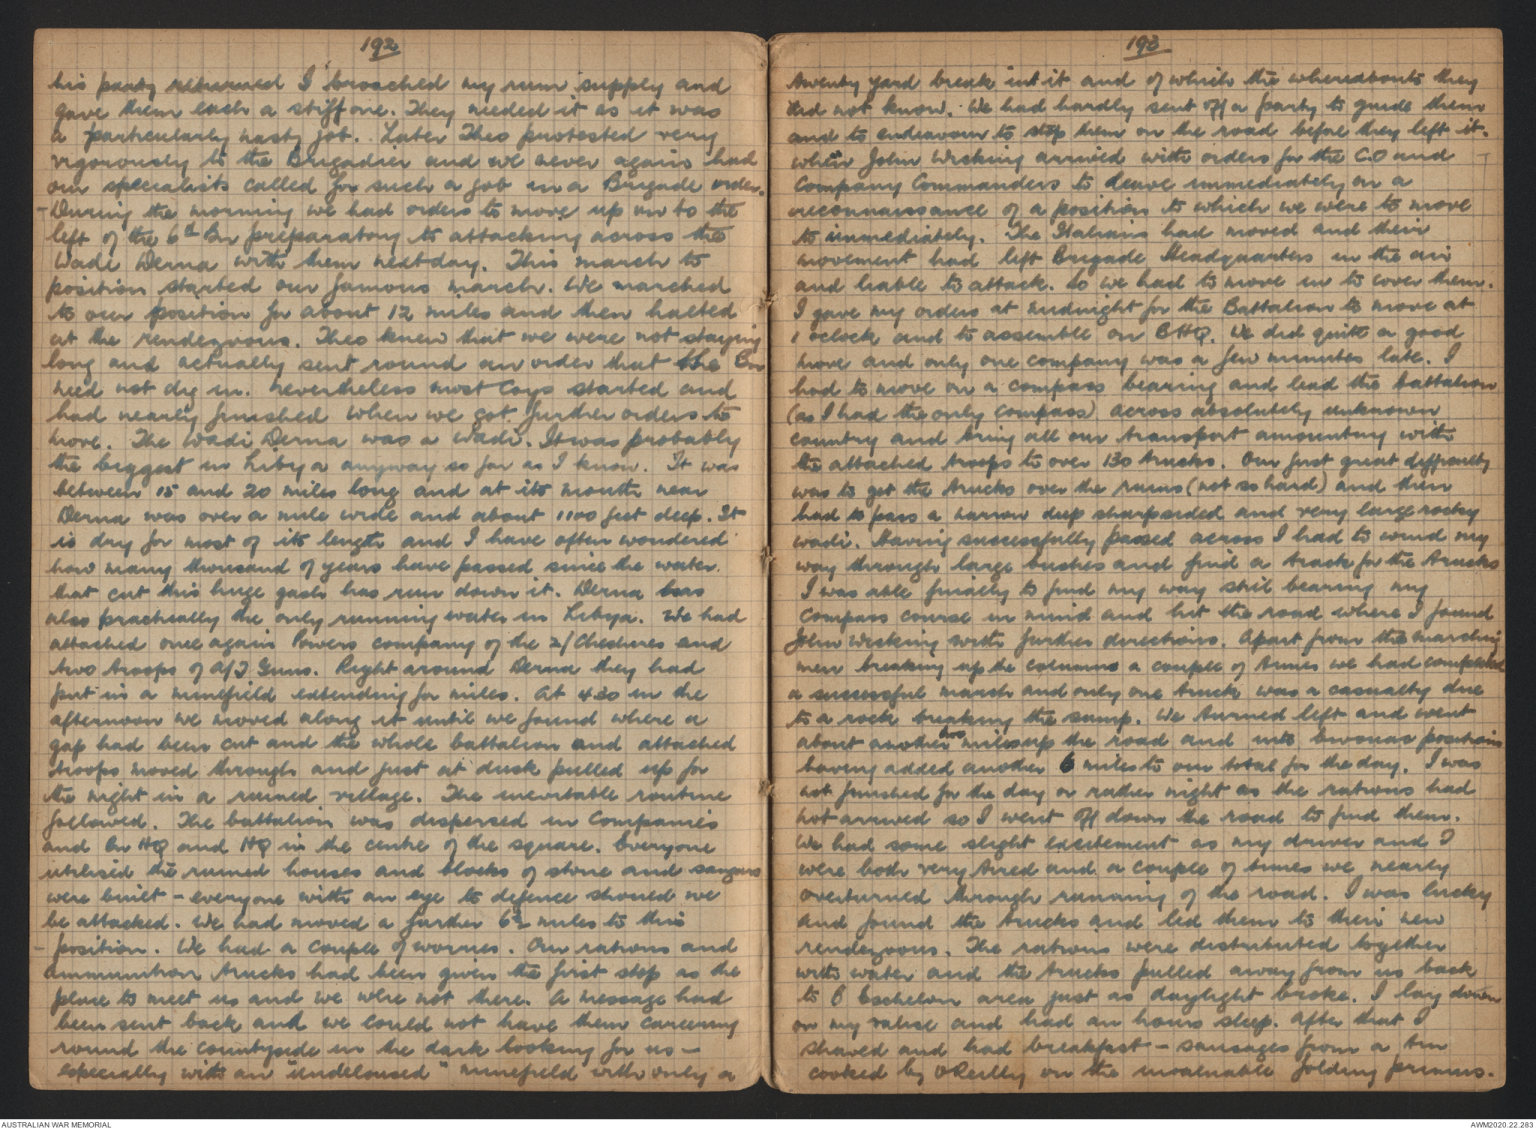 192
his party returned I broached my rum supply and
gave them each a stiff one. They needed it as it was
a particularly nasty job. Later Theo protested very
vigorously to the Brigadier and we never again had
our specialists called for such a job in a Brigade order.
During the morning we had orders to move up on to the
left of the 6th Bn preparatory to attacking across the
Wadi Derna with them next day. This march to
position started our famous march. We marched
to our position for about 12 miles and then halted
at the rendezvous. Theo knew that we were not staying
long and actually sent round an order that the Bn
need not dig in. Nevertheless most Coys started and
had nearly finished when we got further orders to
move. The Wadi Derna was a Wadi. It was probably
the biggest in Libya anyway so far as I know. It was
between 15 and 20 miles long and at its mouth near
Derna was over a mile wide and about 1100 feet deep. It
is dry for most of its length and I have often wondered
how many thousand of years have passed since the water
that cut this huge gash has run down it. Derna has
also practically the only running water in Libya. We had
attached once again Powers company of the 2/Cheshires and
two troops of A/T Guns. Right around Derna they had
put in a minefield extending for miles. At 4.30 in the
afternoon we moved along it until we found where a
gap had been cut and the whole battalion and attached
troops moved through and just at dusk pulled up for
the night in a ruined village. The inevitable routine
followed. The battalion was dispersed in Companies
and Bn HQ and HQ in the centre of the square. Everyone
utilised the ruined houses and blocks of stone and sangars
were built - everyone with an eye to defence should we
be attacked. We had moved a further 6½ miles to this
position. We had a couple of worries. Our rations and
ammunition trucks had been given the first stop as the
place to meet us and we were not there. A message had
been sent back and we could not have them careering
round the countryside in the dark looking for us -
especially with an "undeloused" minefield with only a
193
twenty yard break in it and of which the whereabouts they
did not know. We had hardly sent off a party to guide them
and to endeavour to stop them on the road before they left it.
when John Wicking arrived with orders for the C.O and
Company Commanders to leave immediately on a
reconnaissance of a position to which we were to move
to immediately. The Italians had moved and their
movement had left Brigade Headquarters in the air
and liable to attack. So we had to move in to cover them.
I gave my orders at midnight for the Battalion to move at
1 oclock and to assemble on BHQ. We did quite a good
move and only one company was a few minutes late. I
had to move on a compass bearing and lead the battalion
(as I had the only compass) across absolutely unknown
country and bring all our transport amounting with
the attached troops to over 130 trucks. Our first great difficulty
was to get the trucks over the ruins (not so hard) and then
had to pass a narrow deep sharpsided and very large rocky
wadi. Having successfully passed across I had to wend my
way through large bushes and find a track for the trucks
I was able finally to find my way still bearing my
compass course in mind and hit the road where I found
John Wicking with further directions. Apart from the marching
men breaking up the columns a couple of times we had completed
a successful march and only one truck was a casualty due
to a rock breaking the sump. We turned left and went
about another two miles up the road and into bivouac positions
having added another 6 miles to our total for the day. I was
not finished for the day or rather night as the rations had
not arrived so I went off down the road to find them.
We had some slight excitement as my driver and I
were both very tired and a couple of times we nearly
overturned through running off the road. I was lucky
and found the trucks and led them to their new
rendezvous. The rations were distributed together
with water and the trucks pulled away from us back
to B Echelon area just as daylight broke. I lay down
on my valise and had an hours sleep. After that I
shaved and had breakfast - sausages from a tin
cooked by O'Reilly on the invaluable folding primus.
AUSTRALIAN WAR MEMORIAL
AWM2020.22.283